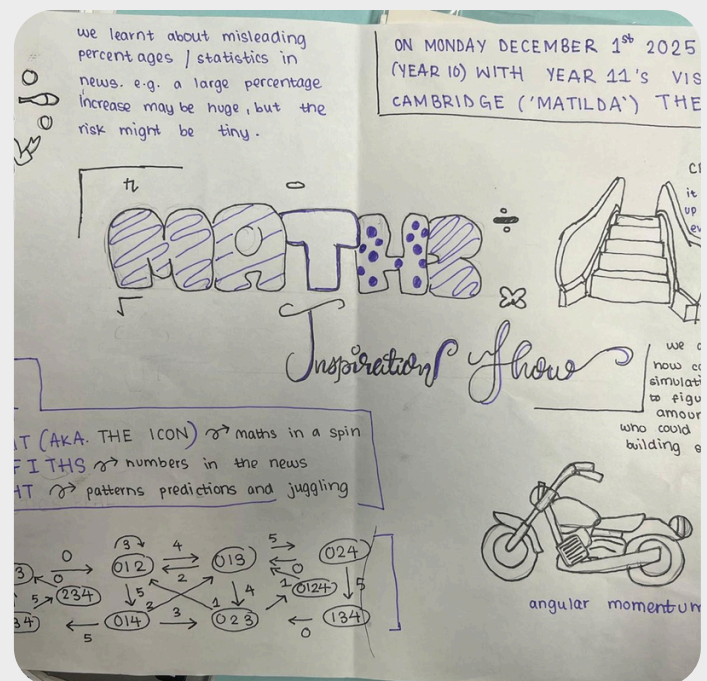 we learnt about misleading
percentages / statistics in
news. e.g. a large percentage
increase may be huge, but the
risk might be tiny.
ON MONDAY DECEMBER 1st 2025
(YEAR 10) WITH YEAR 11's VIS
CAMBRIDGE ('MATILDA') THE
it
up
MATHS
Inspiration Show
we
how
simulati
to figu
amour
who could
building
(AKA. THE ICON) → maths in a spin
→ numbers in the news
→ patterns predictions and juggling
0 3 4 5
012 013 024
0 2 0
234 5 5 4 1 0124 5
014 3 023 134
5 0
angular momentum